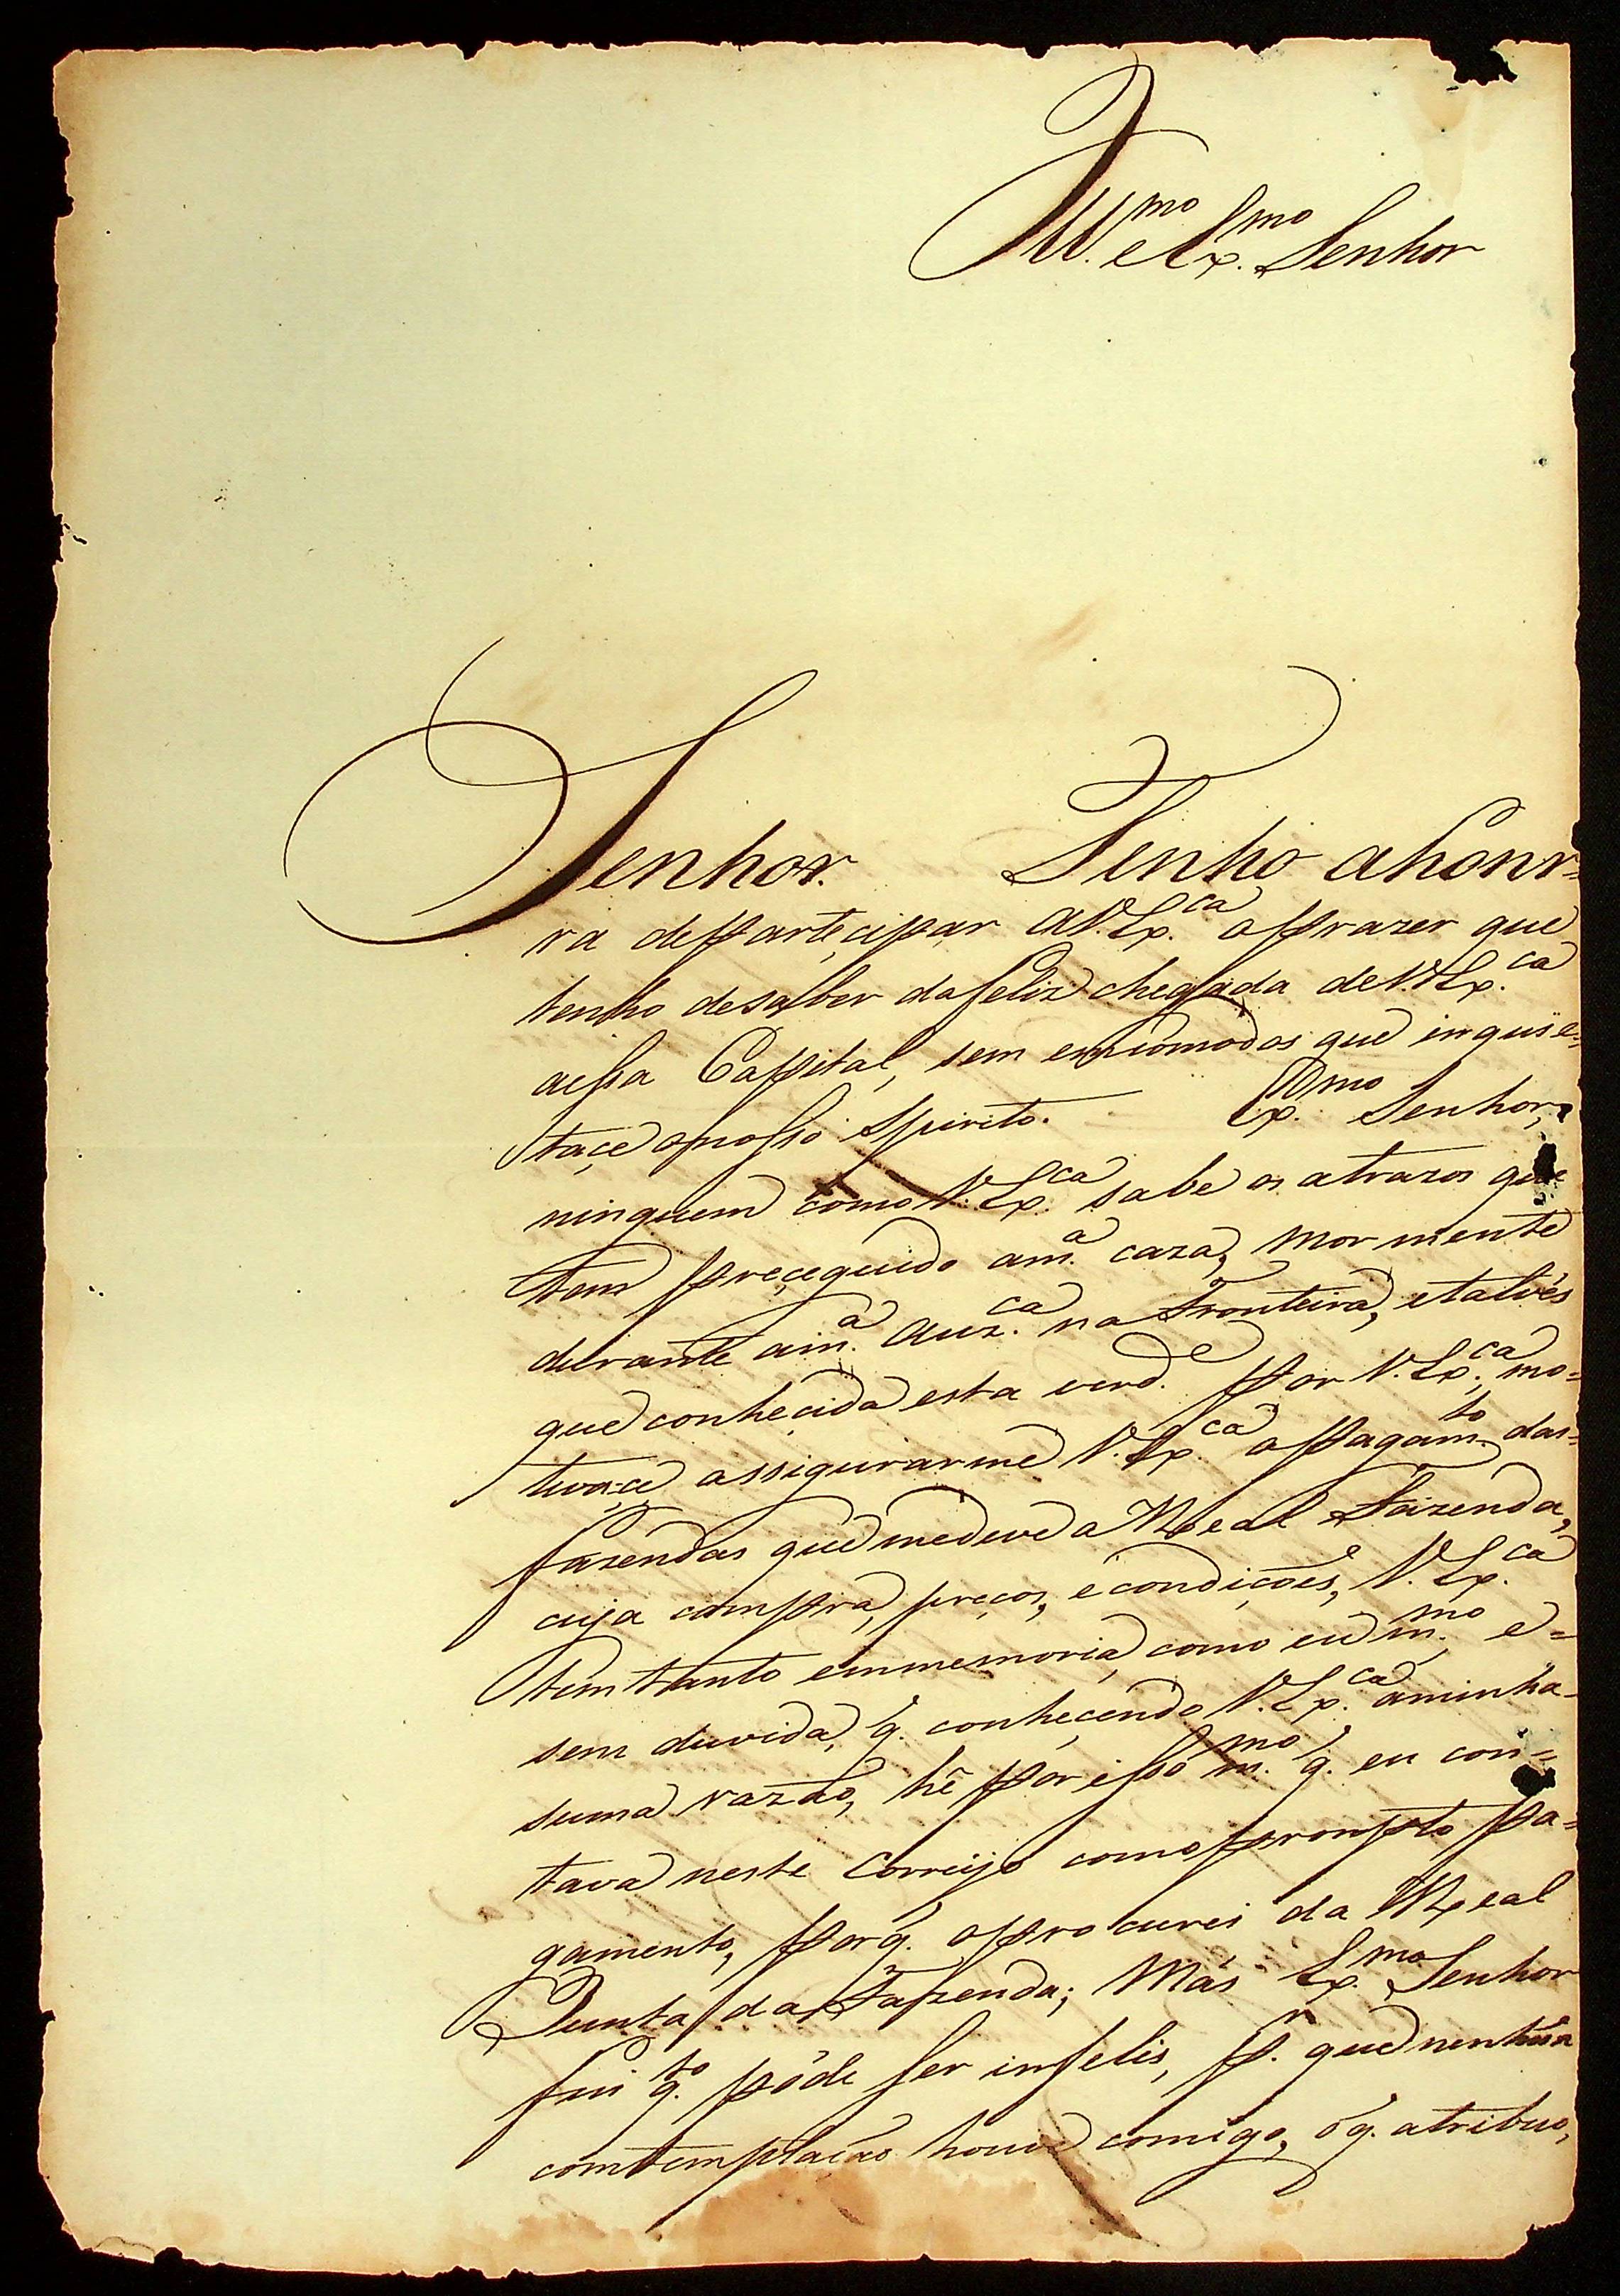 Ill.mo e Ex.mo Senhor
Senhor. Tenho ahonr=
ra departecipar aV.Ex.ca oprazer que
tenho desaber dafeliz chegada deV.Ex.ca
aessa Cappital, sem encomodos que inquie=
taçe onosso Spirito. Ex.mo Senhor,
ninguem como V.Ex.ca sabe os atrazos que
tem preçeguido am.a caza, mormente
durante aim.a auz.ca na Fronteira, etalvés
que conheçida esta verd.e por V.Ex.ca, mo=
tiva-çe assigurarme V.Ex.ca opagam.to das=
fazendas que medeve a Real Fazenda,
cuja compra, preços, econdiçoes, V.Ex.ca
tem tanto emmemoria, como eu m.mo e=
sem duvida, q. conheçendo V.Ex.ca aminha=
suma razão, hé por isso m.mo q. eu con=
tava neste Correijo comoprompto pa=
gamento, porq. oprocurei da Real
Junta da Fazenda; Mas Ex.mo Senhor
fui q.to póde ser infelis, p.r que nenhũa
comtemplação houve comigo, óq. atribuo,